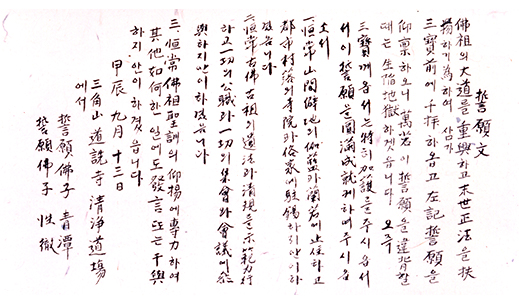 誓願文
佛祖의 大道를 重興하고 末世正法을 扶
揚하기 爲하여 삼가
三寶前에 千拜하옵고 左記 誓願을
仰禀하오니 萬若 이 誓願을 違背할
때는 生陷地獄하겟읍니다 오즉
三寶께옵서는 特히 加護를 주시옵서
서 이 誓願을 圓滿成就케 하여주시옵
소서
一. 恒常 山間僻地의 伽藍과 蘭若에 止住하고
都市村落의 寺院과 俗家에 駐錫하지 안이하
겠읍니다
一. 恒常 古佛古祖의 遺法과 淸規를 示範力行
하고 一切의 公職과 一切의 集會와 會議에 參
與하지 안이하겠읍니다
三. 恒常 佛祖聖訓의 仰揚에 專力하여
其他 如何한 일에도 發言 또는 干與
하지 안이하겠읍니다
甲辰 九月 十三日
三角山 道詵寺 淸淨道場
에서
誓願佛子 青潭
誓願佛子 性徹